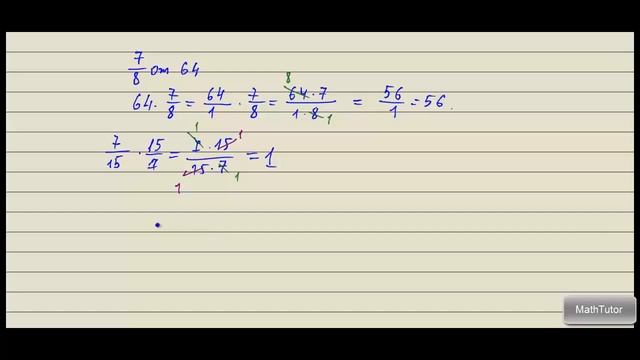 7/8 от 64
64 · 7/8 = 64/1 · 7/8 = (64 · 7)/(1 · 8) = 56/1 = 56.
8 1
7/15 · 15/7 = (7 · 15)/(15 · 7) = 1
1 1 1 1
MathTutor